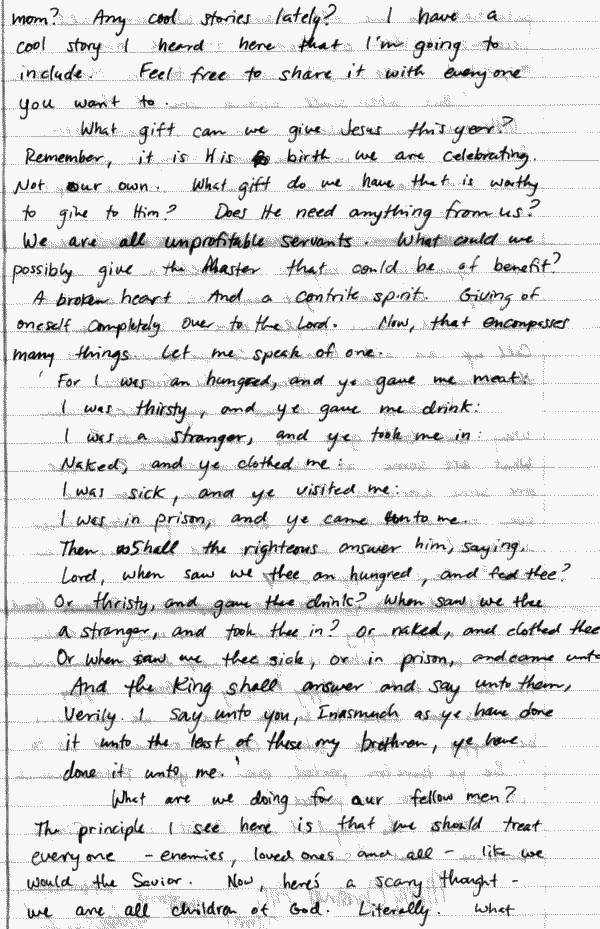 mom? Any cool stories lately? I have a
cool story I heard here that I'm going to
include. Feel free to share it with everyone
you want to.
What gift can we give Jesus this year?
Remember, it is His birth we are celebrating.
Not our own. What gift do we have that is worthy
to give to Him? Does He need anything from us?
We are all unprofitable servants. What could we
possibly give the Master that could be of benefit?
A broken heart. And a contrite spirit. Giving of
oneself completely over to the Lord. Now, that encompasses
many things. Let me speak of one.
'For I was an hungred, and ye gave me meat:
I was thirsty, and ye gave me drink:
I was a stranger, and ye took me in:
Naked, and ye clothed me:
I was sick, and ye visited me:
I was in prison, and ye came unto me.
Then shall the righteous answer him, saying,
Lord, when saw we thee an hungred, and fed thee?
Or thristy, and gave thee drink? When saw we thee
a stranger, and took thee in? or naked, and clothed thee
Or when saw we thee sick, or in prison, and came unto
And the King shall answer and say unto them,
Verily. I say unto you, Inasmuch as ye have done
it unto the least of these my brethren, ye have
done it unto me.'
What are we doing for our fellow men?
The principle I see here is that we should treat
everyone - enemies, loved ones and all - like we
would the Savior. Now, here's a scary thought -
we are all children of God. Literally. What